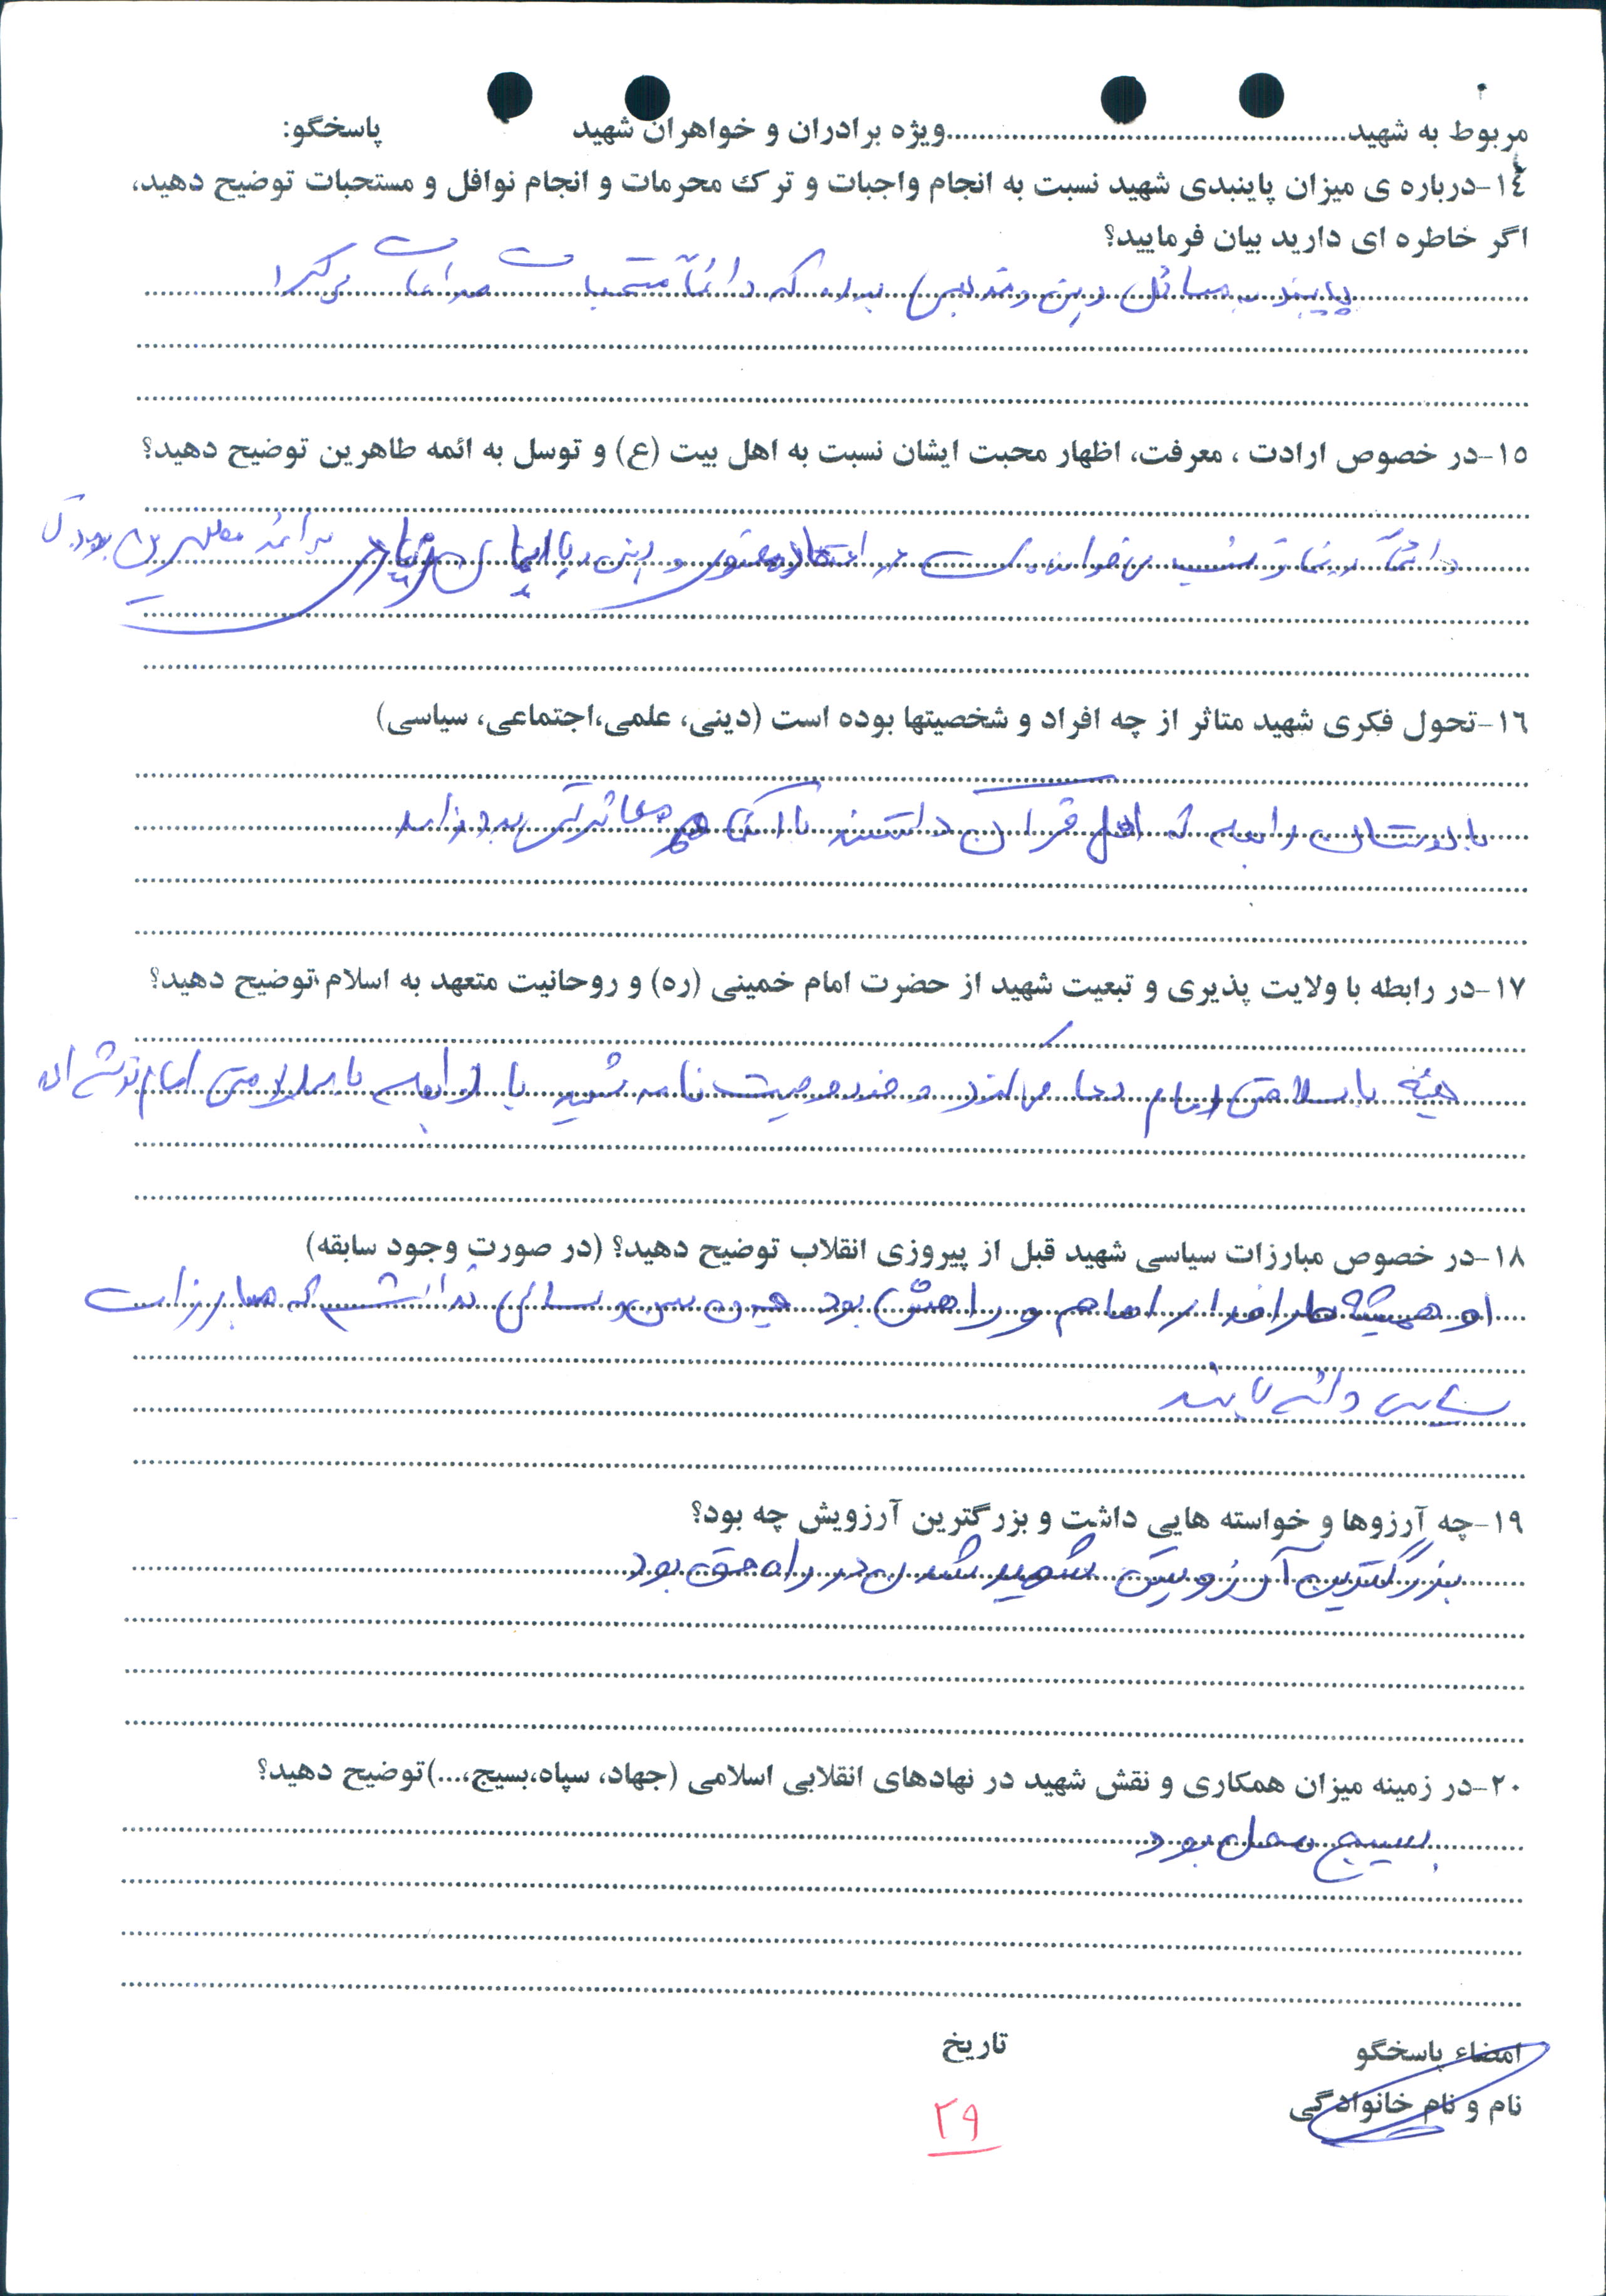 مربوط به شهید..........ویژه برادران و خواهران شهید پاسخگو:
١٤-درباره ی میزان پاینبدی شهید نسبت به انجام واجبات و ترک محرمات و انجام نوافل و مستحبات توضیح دهید،
اگر خاطره ای دارید بیان فرمایید؟
پایبند به مسائل دینی و مذهبی بوده که دائماً مستحبات
١٥-در خصوص ارادت ، معرفت، اظهار محبت ایشان نسبت به اهل بیت (ع) و توسل به ائمه طاهرین توضیح دهید؟
دائماً نماز شب می خوانده است در
١٦-تحول فکری شهید متاثر از چه افراد و شخصیتها بوده است (دینی، علمی،اجتماعی، سیاسی)
با دوستان رابطه که اهل قرآن داشتند با آنها هم
١٧-در رابطه با ولایت پذیری و تبعیت شهید از حضرت امام خمینی (ره) و روحانیت متعهد به اسلام توضیح دهید؟
همیشه با سلامتی امام دعا می کردند و خود وصیت نامه شهید با رابطه با سلامتی امام نوشته اند
١٨-در خصوص مبارزات سیاسی شهید قبل از پیروزی انقلاب توضیح دهید؟ (در صورت وجود سابقه)
او همیشه طرافدار امام و راهش بود چون سن و سالی نداشتند که مبارزات
سیاسی داشته باشند
١٩-چه آرزوها و خواسته هایی داشت و بزرگترین آرزویش چه بود؟
بزرگترین آرزویش شهید شدن در راه حق بود
٢٠-در زمینه میزان همکاری و نقش شهید در نهادهای انقلابی اسلامی (جهاد، سپاه،بسیج،...)توضیح دهید؟
بسیج محل بود
امضاء پاسخگو تاریخ
نام و نام خانوادگی
٢٩